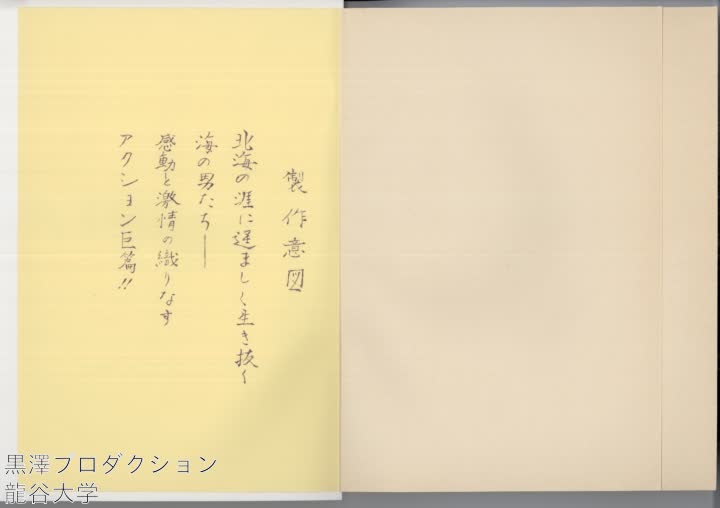 製作意図
北海の涯に逞ましく生き抜く
海の男たち――
感動と激情の織りなす
アクション巨篇!!
黒澤プロダクション
龍谷大学